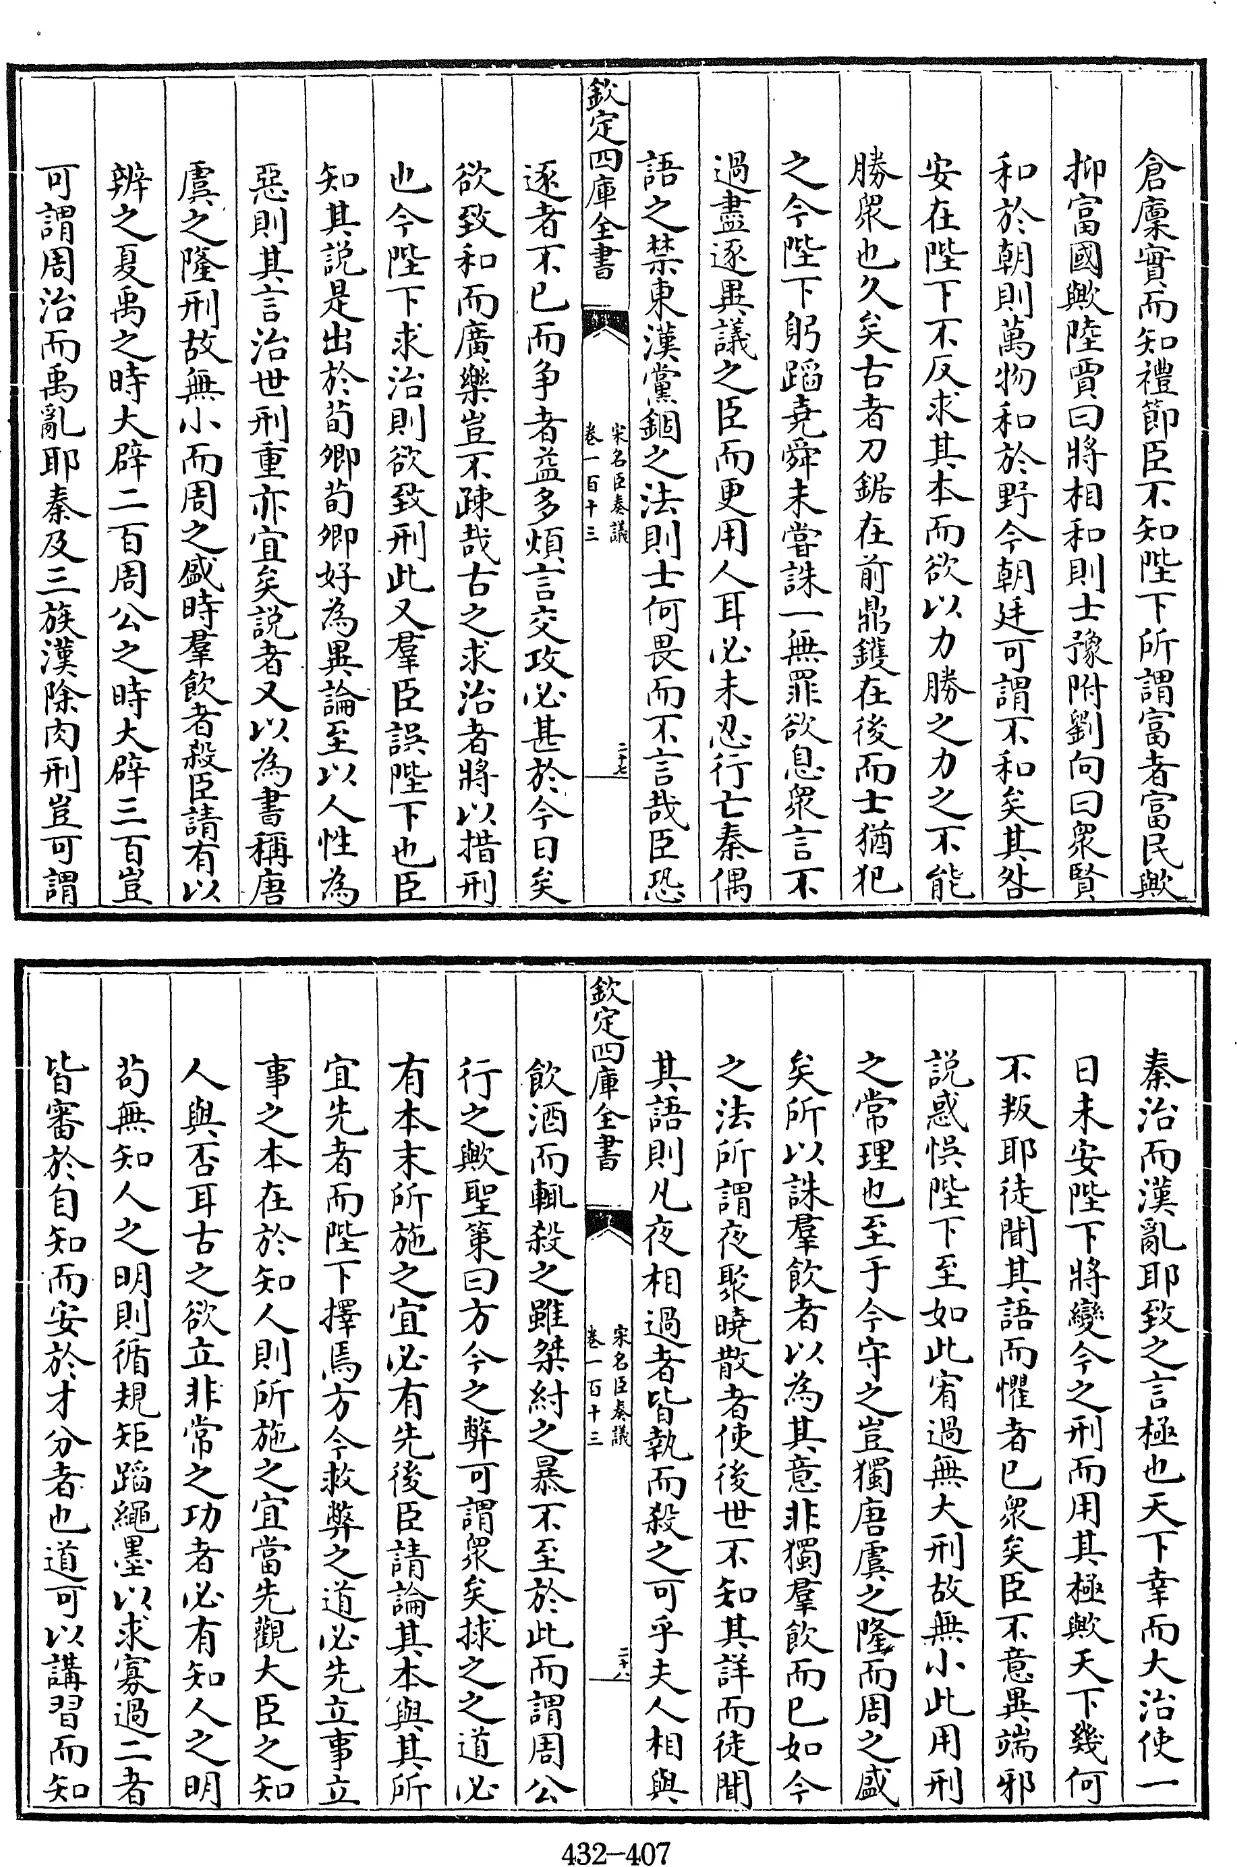 倉廩實而知禮節臣不知陛下所謂富者富民歟
抑富國歟陸賈曰將相和則士豫附劉向曰衆賢
和於朝則萬物和於野今朝廷可謂不和矣其咎
安在陛下不反求其本而欲以力勝之力之不能
勝衆也久矣古者刀鋸在前鼎鑊在後而士猶犯
之今陛下躬蹈堯舜未嘗誅一無罪欲息衆言不
過盡逐異議之臣而更用人耳必未忍行亡秦偶
語之禁東漢黨錮之法則士何畏而不言哉臣恐
欽定四庫全書
宋名臣奏議
卷一百十三
二十七
逐者不已而争者益多煩言交攻必甚於今日矣
欲致和而廣樂豈不踈哉古之求治者將以措刑
也今陛下求治則欲致刑此又羣臣誤陛下也臣
知其説是出於荀卿荀卿好為異論至以人性為
惡則其言治世刑重亦宜矣説者又以為書稱唐
虞之隆刑故無小而周之盛時羣飲者殺臣請有以
辨之夏禹之時大辟二百周公之時大辟三百豈
可謂周治而禹亂耶秦及三族漢除肉刑豈可謂
秦治而漢亂耶致之言極也天下幸而大治使一
日未安陛下將變今之刑而用其極歟天下幾何
不叛耶徒聞其語而懼者已衆矣臣不意異端邪
説惑悞陛下至如此宥過無大刑故無小此用刑
之常理也至于今守之豈獨唐虞之隆而周之盛
矣所以誅羣飲者以為其意非獨羣飲而已如今
之法所謂夜聚曉散者使後世不知其詳而徒聞
其語則凡夜相過者皆執而殺之可乎夫人相與
欽定四庫全書
宋名臣奏議
卷一百十三
二十八
飲酒而輒殺之雖桀紂之暴不至於此而謂周公
行之歟聖策曰方今之弊可謂衆矣捄之之道必
有本末所施之宜必有先後臣請論其本與其所
宜先者而陛下擇焉方今救弊之道必先立事立
事之本在於知人則所施之宜當先觀大臣之知
人與否耳古之欲立非常之功者必有知人之明
茍無知人之明則循規矩蹈繩墨以求寡過二者
皆審於自知而安於才分者也道可以講習而知
432-407